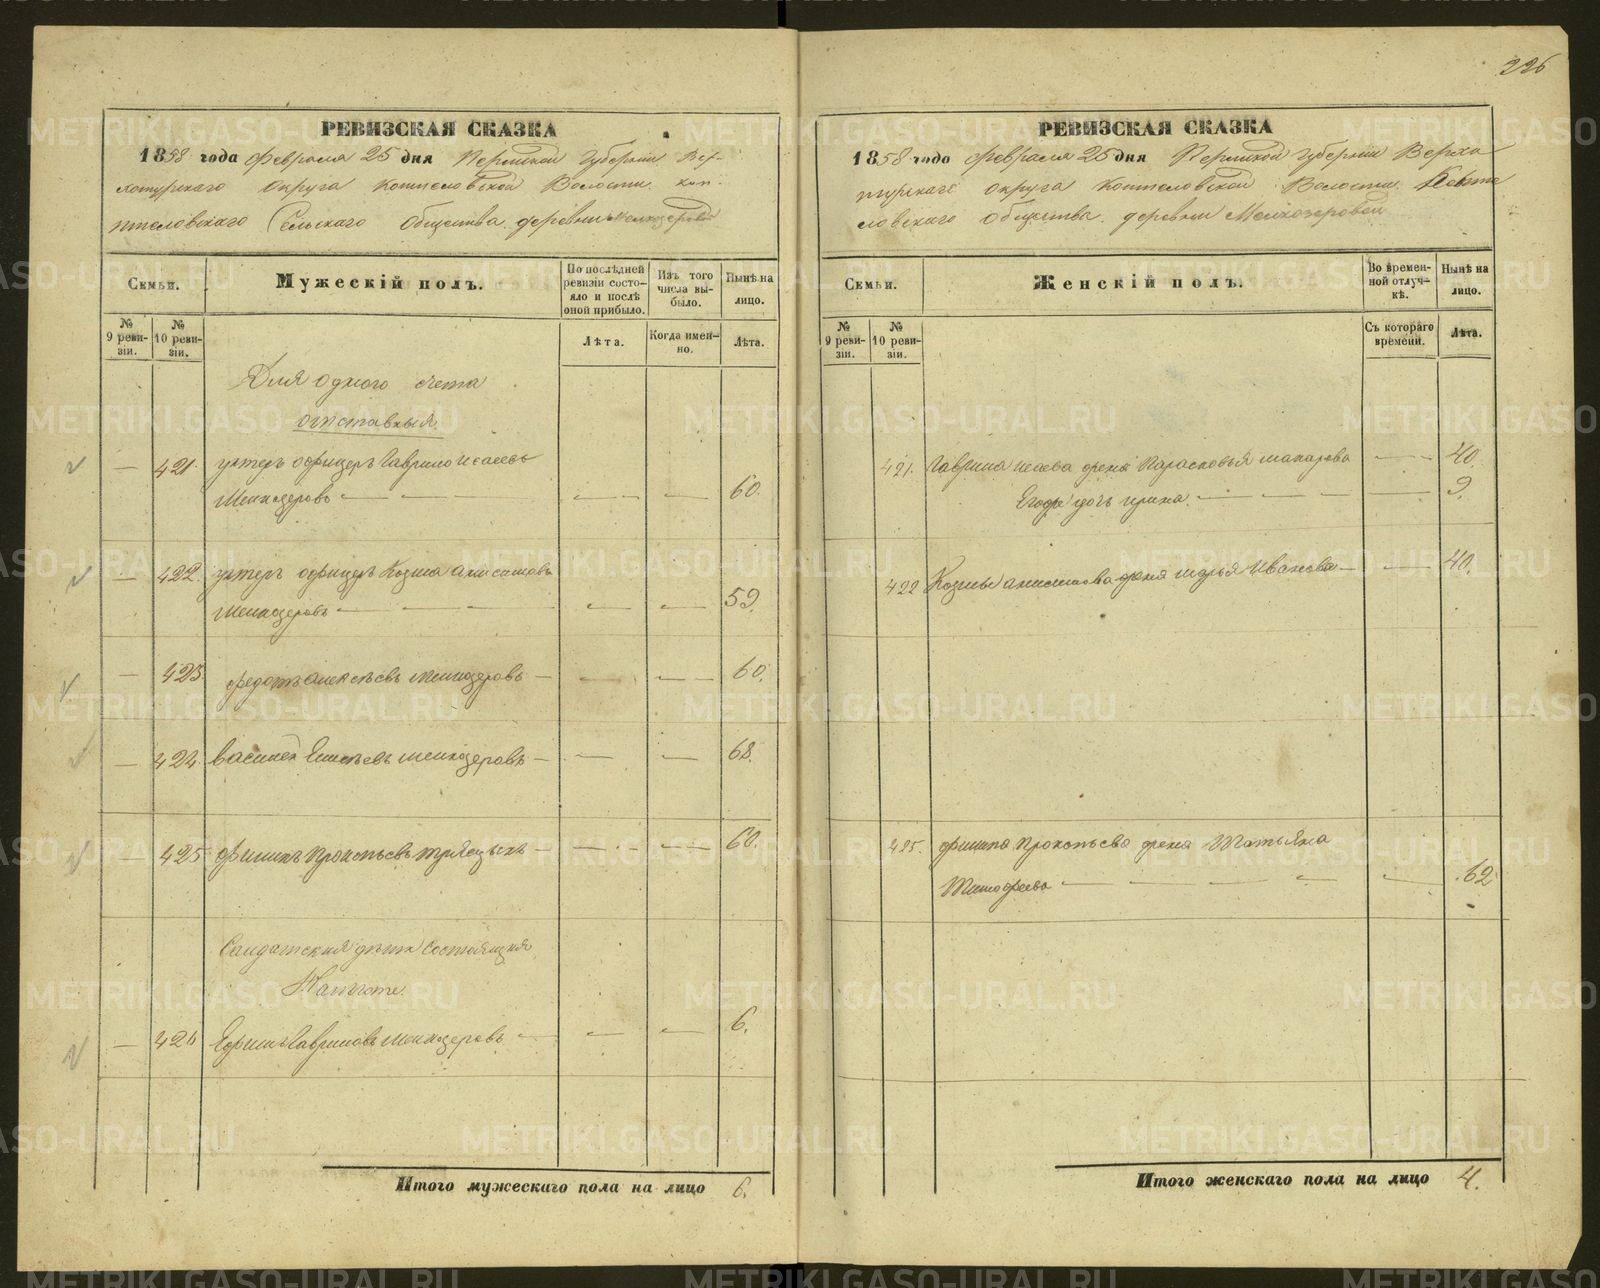 226
РЕВИЗСКАЯ СКАЗКА
1858 года февраля 25 дня Пермской Губернии Вер-
хотурскаго округа Коптеловской Волости Коп-
птеловскаго Сельскаго Общества деревни Мелкозеровой
Семьи.
Мужескій полъ.
По послѣдней ревизіи состояло и послѣ оной прибыло.
Изъ того числа выбыло.
Нынѣ на лицо.
№ 9 ревизіи.
№ 10 ревизіи.
Лѣта.
Когда именно.
Лѣта.
Для одного счета
отставныя
— 421. унтеръ офицеръ Гаврило Исаевъ
Мелкозеровъ — — — 60.
— 422. унтеръ офицеръ Козма Анисимовъ
Мелкозеровъ — — — 59.
— 423 Федотъ Алексѣевъ Мелкозеровъ — — — 60.
— 424 Василей Елисѣевъ Мелкозеровъ — — — 68.
— 425 Филипъ Прокопьевъ — — — 60.
Салдатския дѣти состоящия
— 426 Ефимъ Гавриловъ Мелкозеровъ — — — 6.
Итого мужескаго пола на лицо 6.
РЕВИЗСКАЯ СКАЗКА
1858 года февраля 25 дня Пермской Губернии Верхо
турскаго округа Коптеловской Волости Копте
ловскаго Общества деревни Мелкозеровой
Семьи.
Женскій полъ.
Во временной отлучкѣ.
Нынѣ на лицо.
№ 9 ревизіи.
№ 10 ревизіи.
Съ котораго времени.
Лѣта.
421. Гаврила Исаева жена Парасковья Макарова — 40.
Его дочь Ирина — — — 9.
422 Козмы Анисимова жена Марья Иванова — — 40.
425. Филипа Прокопьева жена Татьяна
Тимофеева — — — 62
Итого женскаго пола на лицо 4.
METRIKI.GASO-URAL.RU